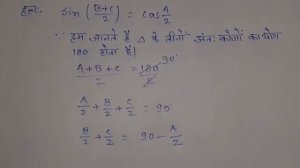 हल: sin (B+C/2) = cos A/2
∵ हम जानते हैं △ के तीनों अंतः कोणों का योग
180° होता है।
A+B+C/2 = 180°/2 90°
A/2 + B/2 + C/2 = 90°
B/2 + C/2 = 90 - A/2